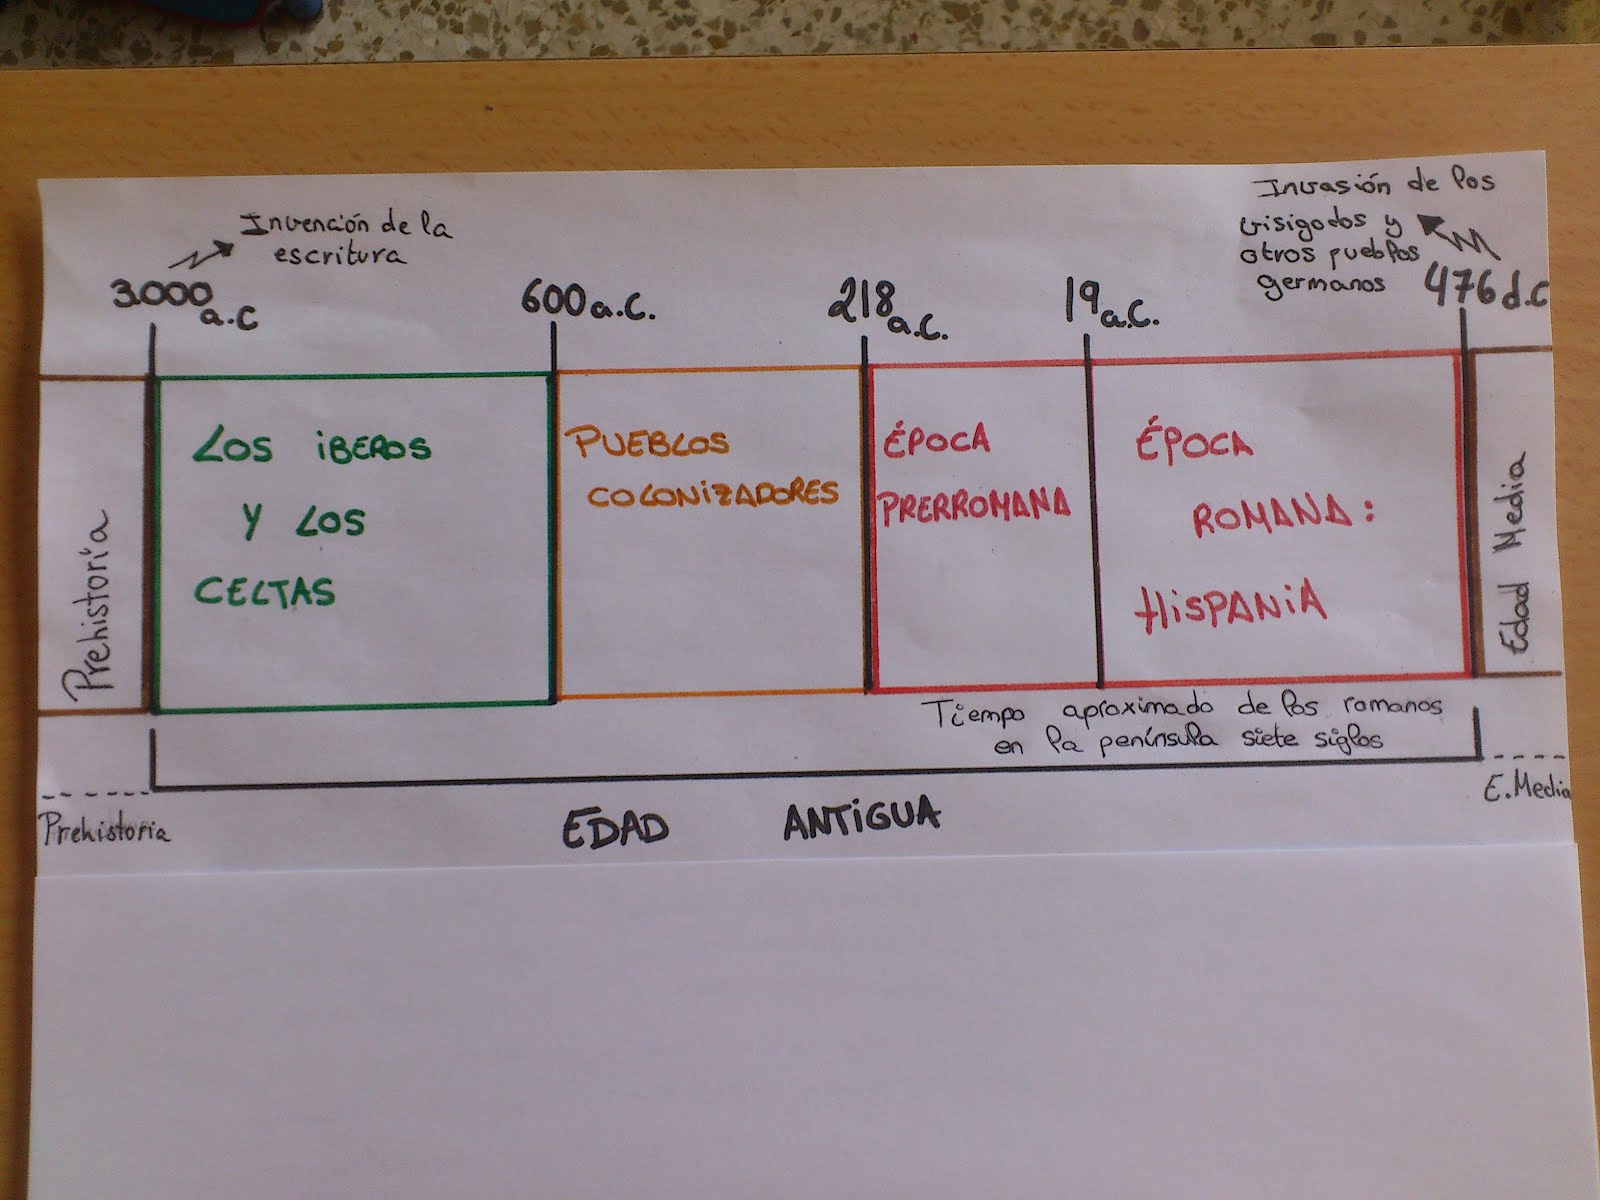 Invención de la
escritura
Invasión de los
visigodos y
otros pueblos
germanos
3.000 a.C
600 a.C.
218 a.C.
19 a.C.
476 d.C
Prehistoria
LOS IBEROS
Y LOS
CELTAS
PUEBLOS
COLONIZADORES
ÉPOCA
PRERROMANA
ÉPOCA
ROMANA:
HISPANIA
Edad Media
Tiempo aproximado de los romanos
en la península siete siglos
Prehistoria
EDAD ANTIGUA
E. Media